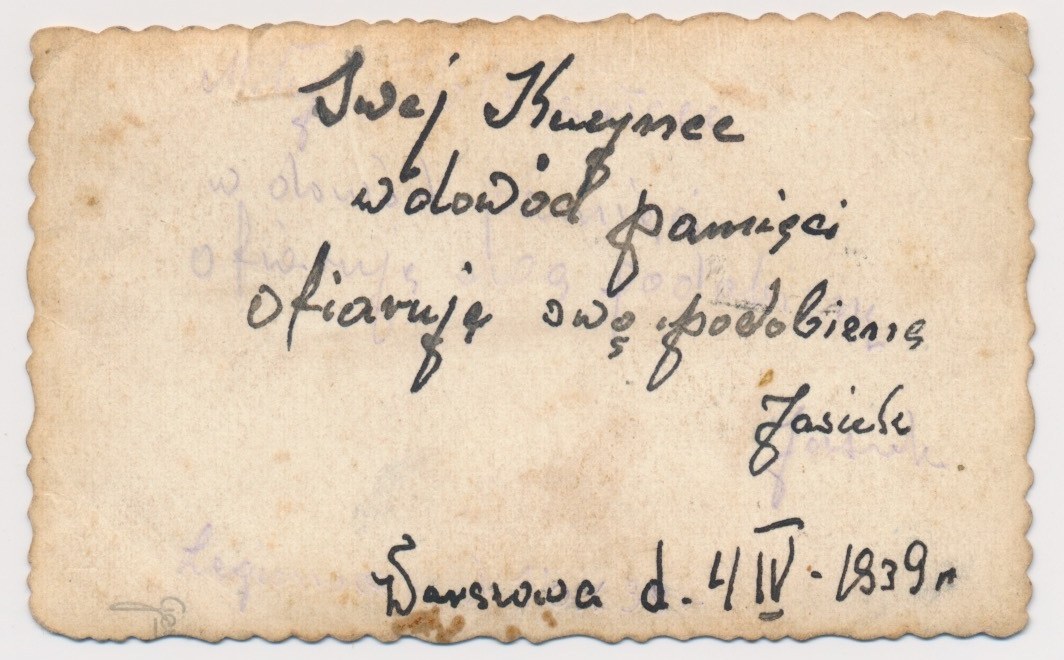 Swej Kuzynce
w dowód pamięci
ofiaruję swą podobiznę
Jasiek
Warszawa d. 4 IV - 1939 r